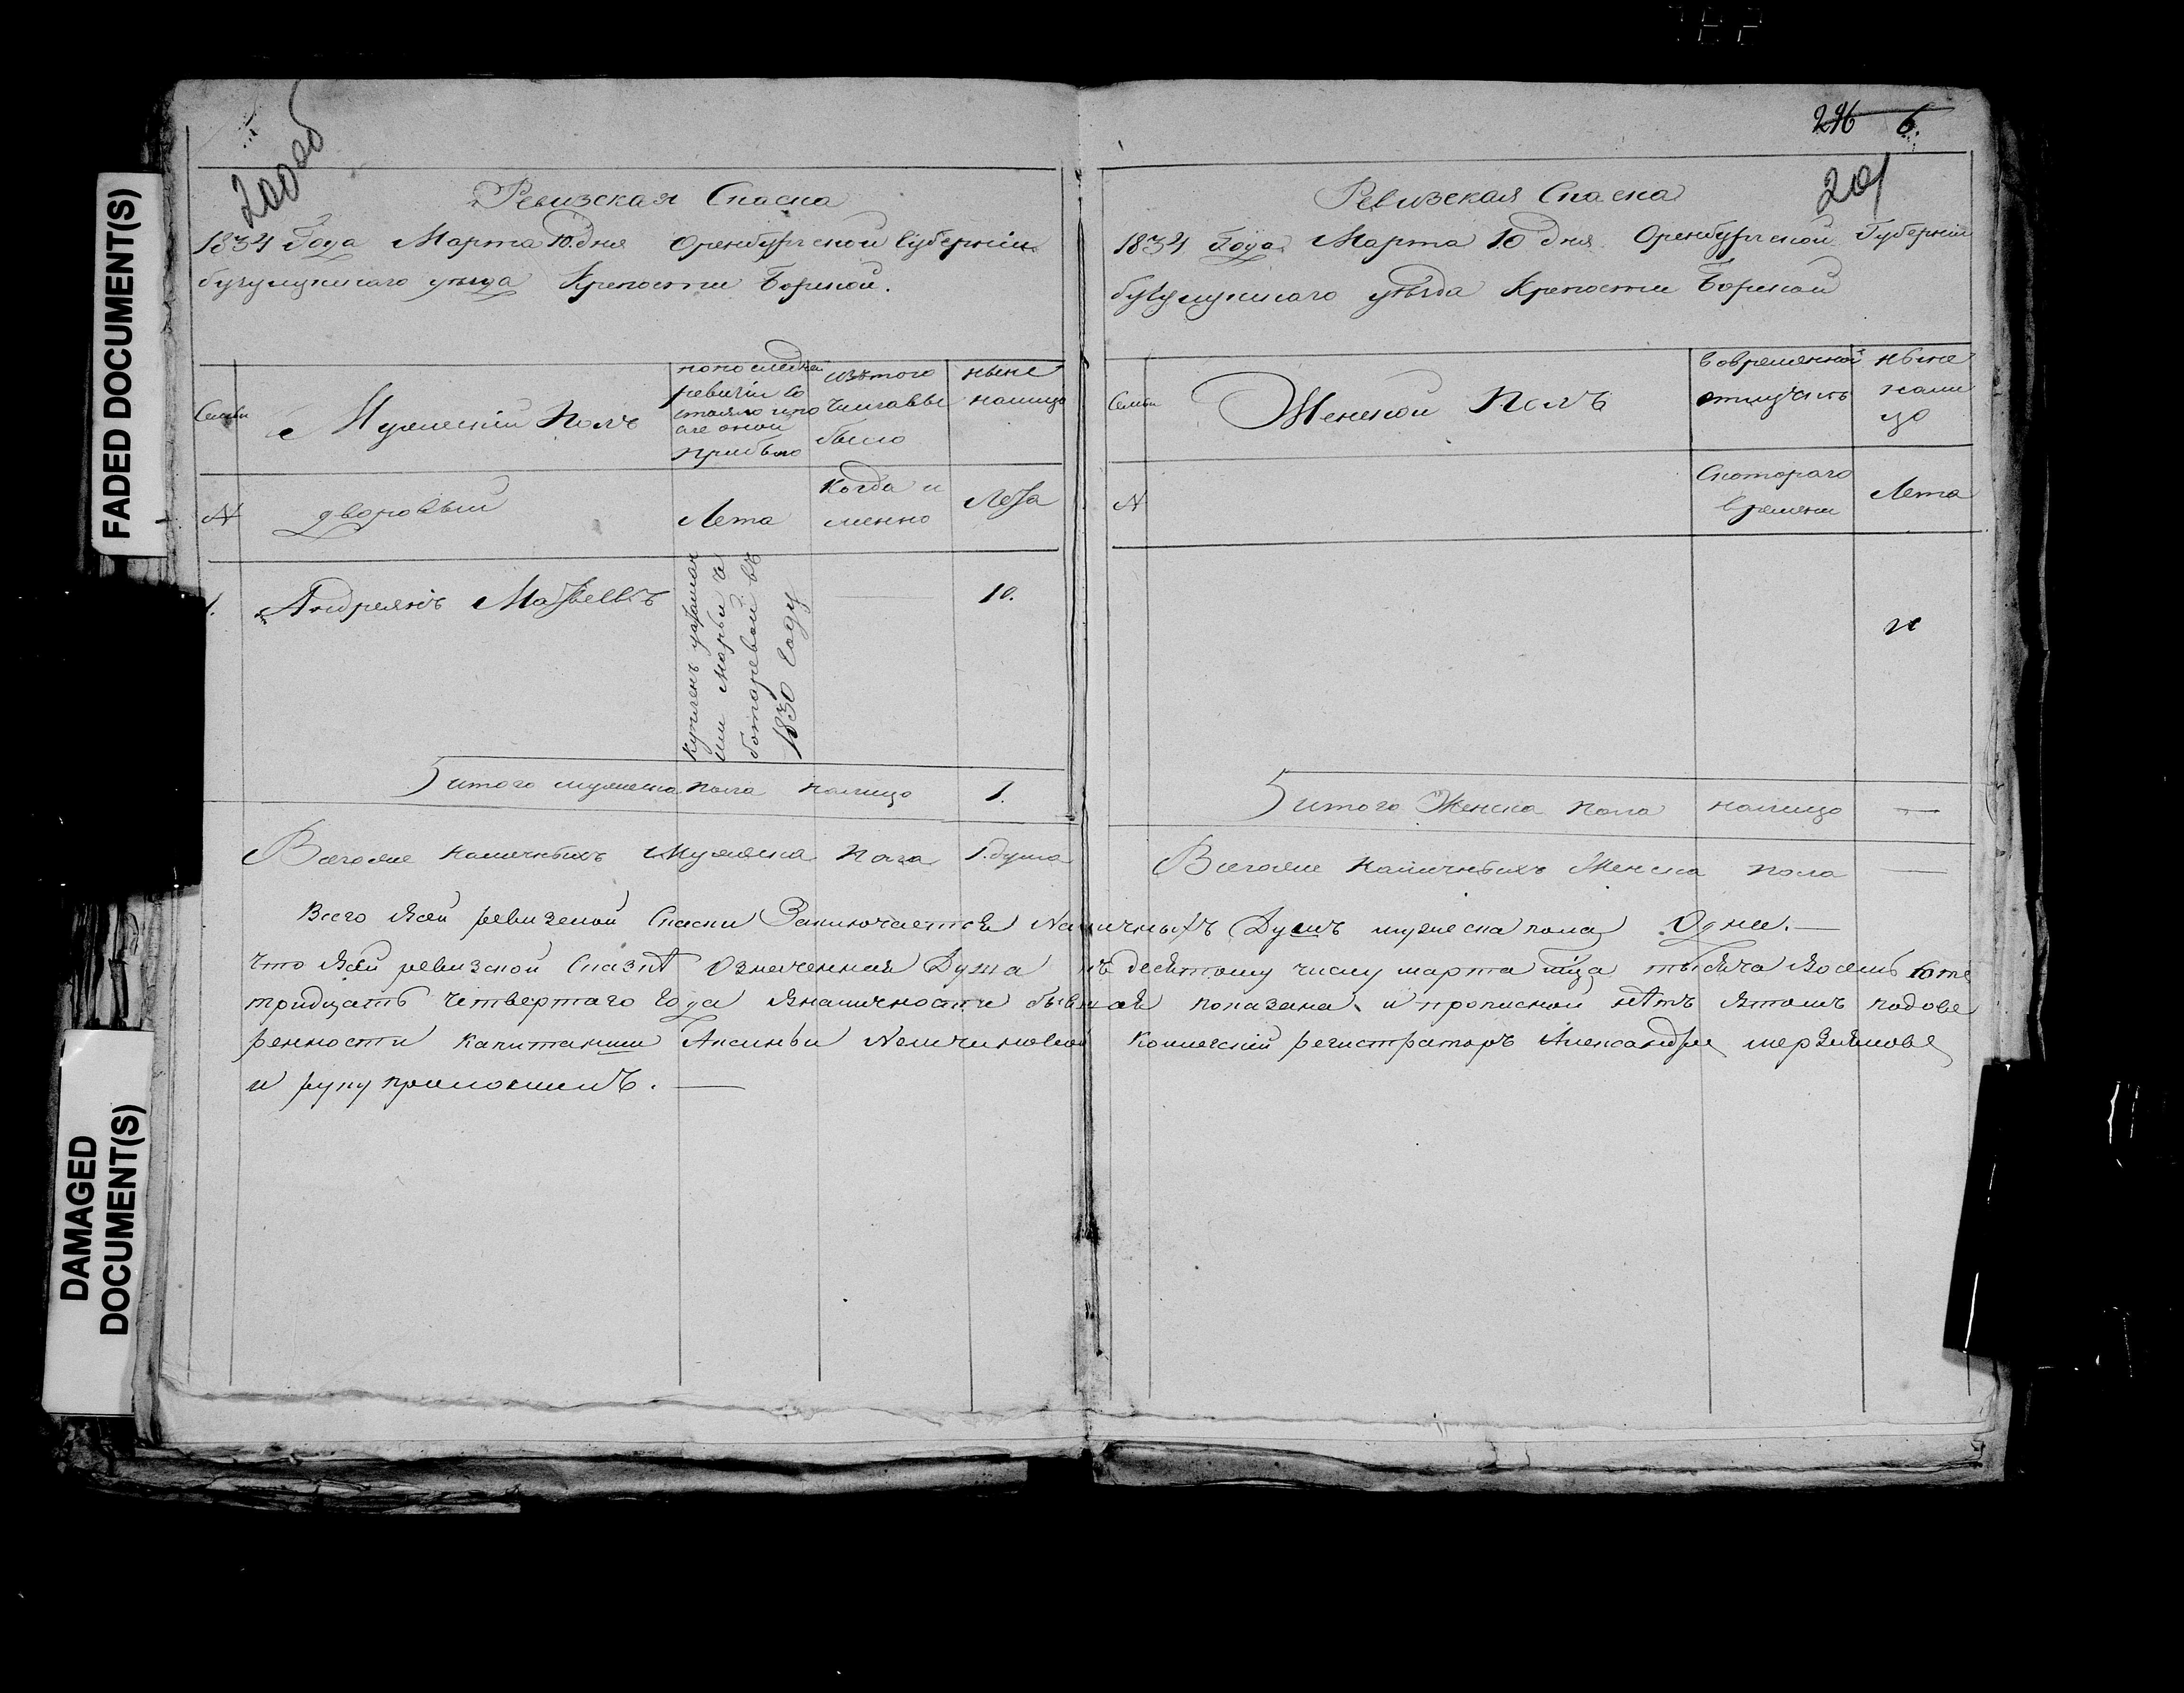 200 об
Ревизская Сказка
1834 Года Марта 10. дня Оренбургской Губернии
бузулукскаго уезда Крепости Борской.
Семьи
Мужеский Полъ
попоследней
ревизии со
стояло ипо
сле оной
прибыло
изтого
числавы
было
ныне
налицо
№
дворовый
Лета
Когда и
менно
Лета
1.
Андреянъ Матвеевъ
Купленъ
Марьи
ботаревой въ
1830 Году
10.
итого мужеска пола налицо 1.
Всегоже наличныхъ Мужеска пола 1. душа
296 6.
201
Ревизская Сказка
1834 Года Марта 10 дня Оренбургской Губернии
бузулукскаго уѣзда Крепости Борской
Семьи
Женской Полъ
вовременной
отлучкѣ
ныне
нали
цо
№
Скотораго
времени
Лета
итого Женска пола налицо —
Всегоже Наличныхъ Женска пола —
Всего всей ревизской Скаски Заключается Наличныхъ Душъ мужеска пола Одна. —
Что всей ревизской Сказкѣ Означенная Душа къ десятому числу марта мца тысяча восемь сотъ
тридцать четвертаго Года вналичности бывшая показана и прописной нѣтъ втомъ подове
ренности Капитанши Аксиньи Коллегский регистраторъ Александръ
и руку приложилъ. —